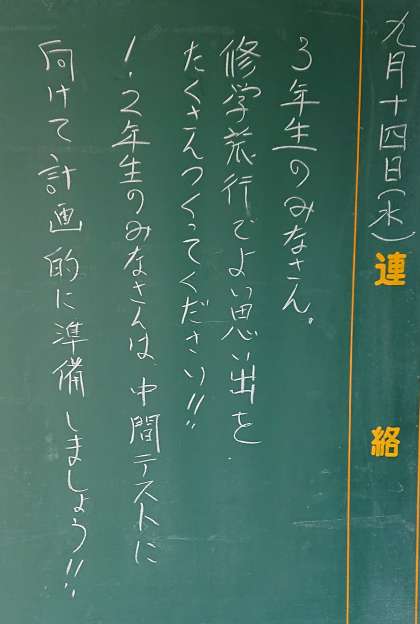 九月十四日(水)
連絡
3年生のみなさん。
修学旅行でよい思い出を
たくさんつくってください!!
1.2年生のみなさんは、中間テストに
向けて計画的に準備しましょう!!